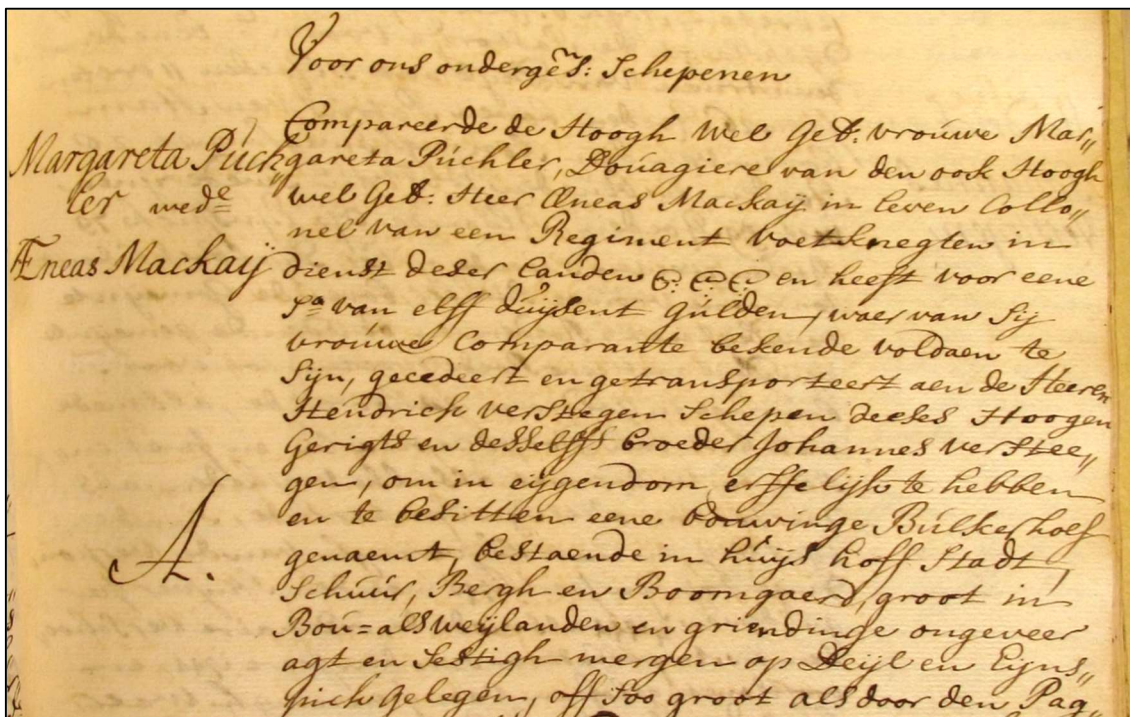 Voor ons onderges: Schepenen
Compareerde de Hoogh wel Geb: vrouwe Mar„
gareta Püchler, Douagiere van den ook Hoogh
wel Geb: Heer Æneas Mackaÿ in leven Collo„
nel van een Regiment voetknegten in
dienst deser landen &. &. & en heeft voor eene
sa van elff duÿsent gulden, waer van sij
vrouwe Comparante bekende voldaen te
sijn, gecedeert en getransporteert aen de Heeren
Hendrick versteegen Schepen deeses Hoogen
Gerigts en desselffs broeder Johannes verstee„
gen, om in eÿgendom erffelijk te hebben
en te besitten eene bouwinge Bulkerhoef
genaemt, bestaende in huÿs hoff Stadt,
Schuür, Bergh en Boomgaerd, groot in
Bou=als weÿlanden en griendinge ongeveer
agt en sestigh mergen op Deÿl en Eÿns„
pick gelegen, off soo groot als door den Pag„
Margareta Püch„
ler wede
Æneas Mackaÿ
A.